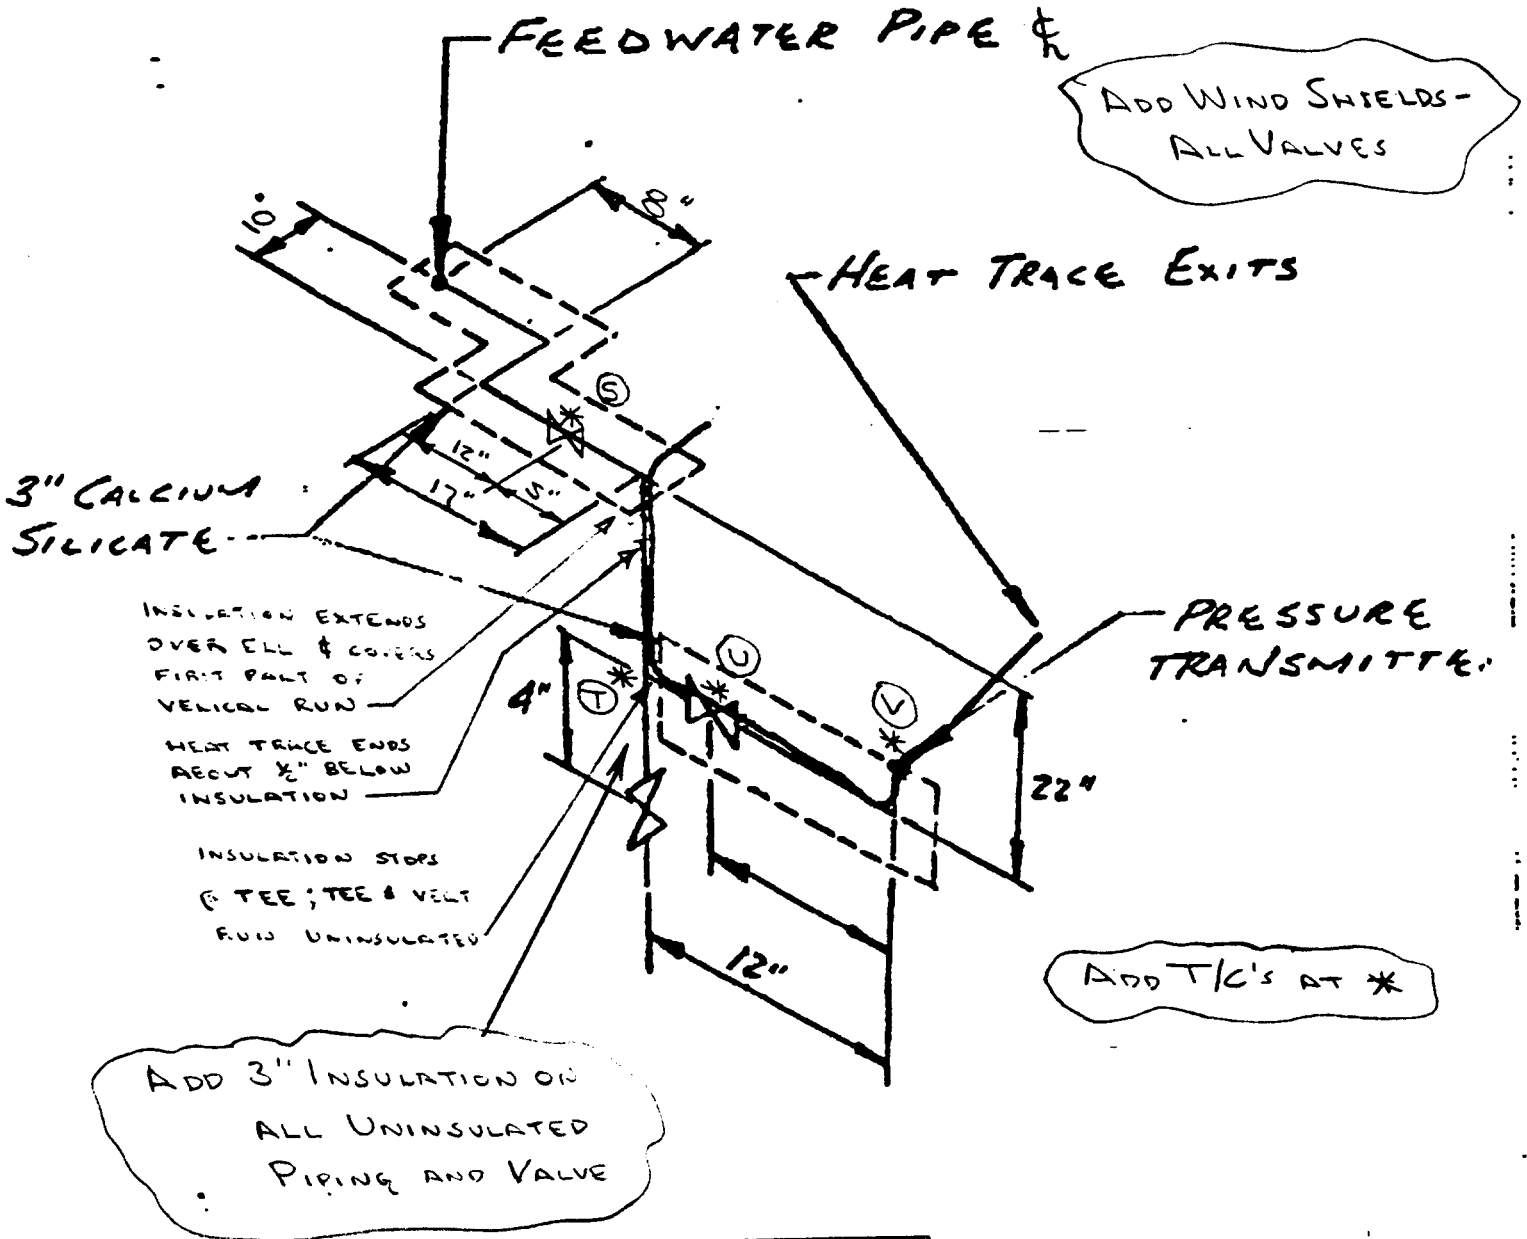 FEEDWATER PIPE ℄
ADD WIND SHIELDS-
ALL VALVES
10"
8"
HEAT TRACE EXITS
S
12"
17"
5"
3" CALCIUM
SILICATE
INSULATION EXTENDS
OVER ELL & COVERS
FIRST PART OF
VERICAL RUN
HEAT TRACE ENDS
ABOUT ½" BELOW
INSULATION
INSULATION STOPS
@ TEE; TEE & VERT
RUN UNINSULATED
4"
T
U
V
PRESSURE
TRANSMITTE
22"
12"
ADD T/C'S AT *
ADD 3" INSULATION ON
ALL UNINSULATED
PIPING AND VALVE